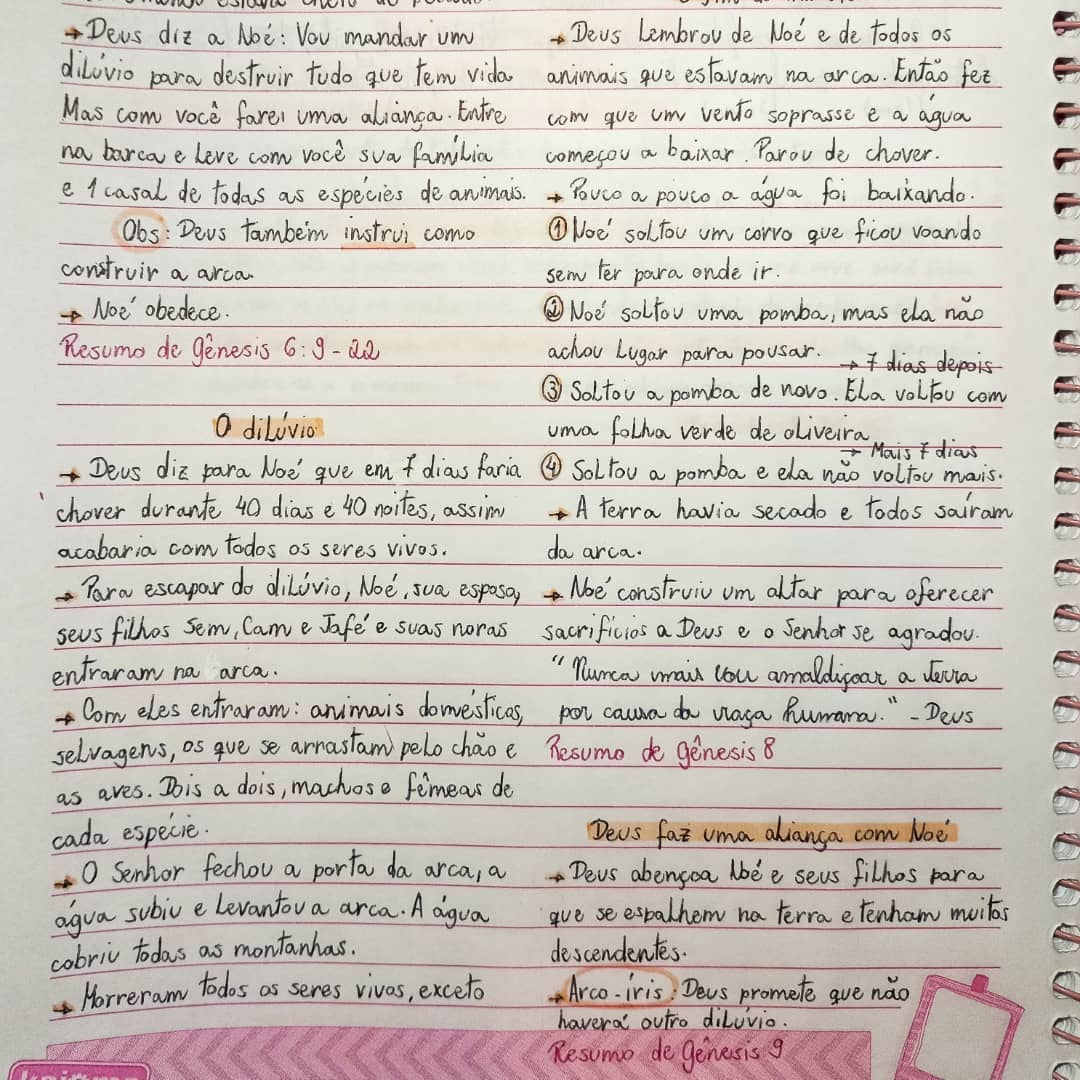 → Deus diz a Noé: Vou mandar um
dilúvio para destruir tudo que tem vida
Mas com você farei uma aliança. Entre
na barca e leve com você sua família
e 1 casal de todas as espécies de animais.
Obs: Deus também instrui como
construir a arca.
→ Noé obedece.
Resumo de Gênesis 6:9-22
O dilúvio
→ Deus diz para Noé que em 7 dias faria
chover durante 40 dias e 40 noites, assim
acabaria com todos os seres vivos.
→ Para escapar do dilúvio, Noé, sua esposa,
seus filhos Sem, Cam e Jafé e suas noras
entraram na arca.
→ Com eles entraram: animais domésticas,
selvagens, os que se arrastam pelo chão e
as aves. Dois a dois, machos e fêmeas de
cada espécie.
→ O Senhor fechou a porta da arca, a
água subiu e levantou a arca. A água
cobriu todas as montanhas.
→ Morreram todos os seres vivos, exceto
→ Deus lembrou de Noé e de todos os
animais que estavam na arca. Então fez
com que um vento soprasse e a água
começou a baixar. Parou de chover.
→ Pouco a pouco a água foi baixando.
① Noé soltou um corvo que ficou voando
sem ter para onde ir.
② Noé soltou uma pomba, mas ela não
achou lugar para pousar.
→ 7 dias depois
③ Soltou a pomba de novo. Ela voltou com
uma folha verde de oliveira
→ Mais 7 dias
④ Soltou a pomba e ela não voltou mais.
→ A terra havia secado e todos saíram
da arca.
→ Noé construiu um altar para oferecer
sacrifícios a Deus e o Senhor se agradou.
"Nunca mais vou amaldiçoar a terra
por causa da raça humana." - Deus
Resumo de Gênesis 8
Deus faz uma aliança com Noé
→ Deus abençoa Noé e seus filhos para
que se espalhem na terra e tenham muitos
descendentes.
→ Arco-íris: Deus promete que não
haverá outro dilúvio.
Resumo de Gênesis 9